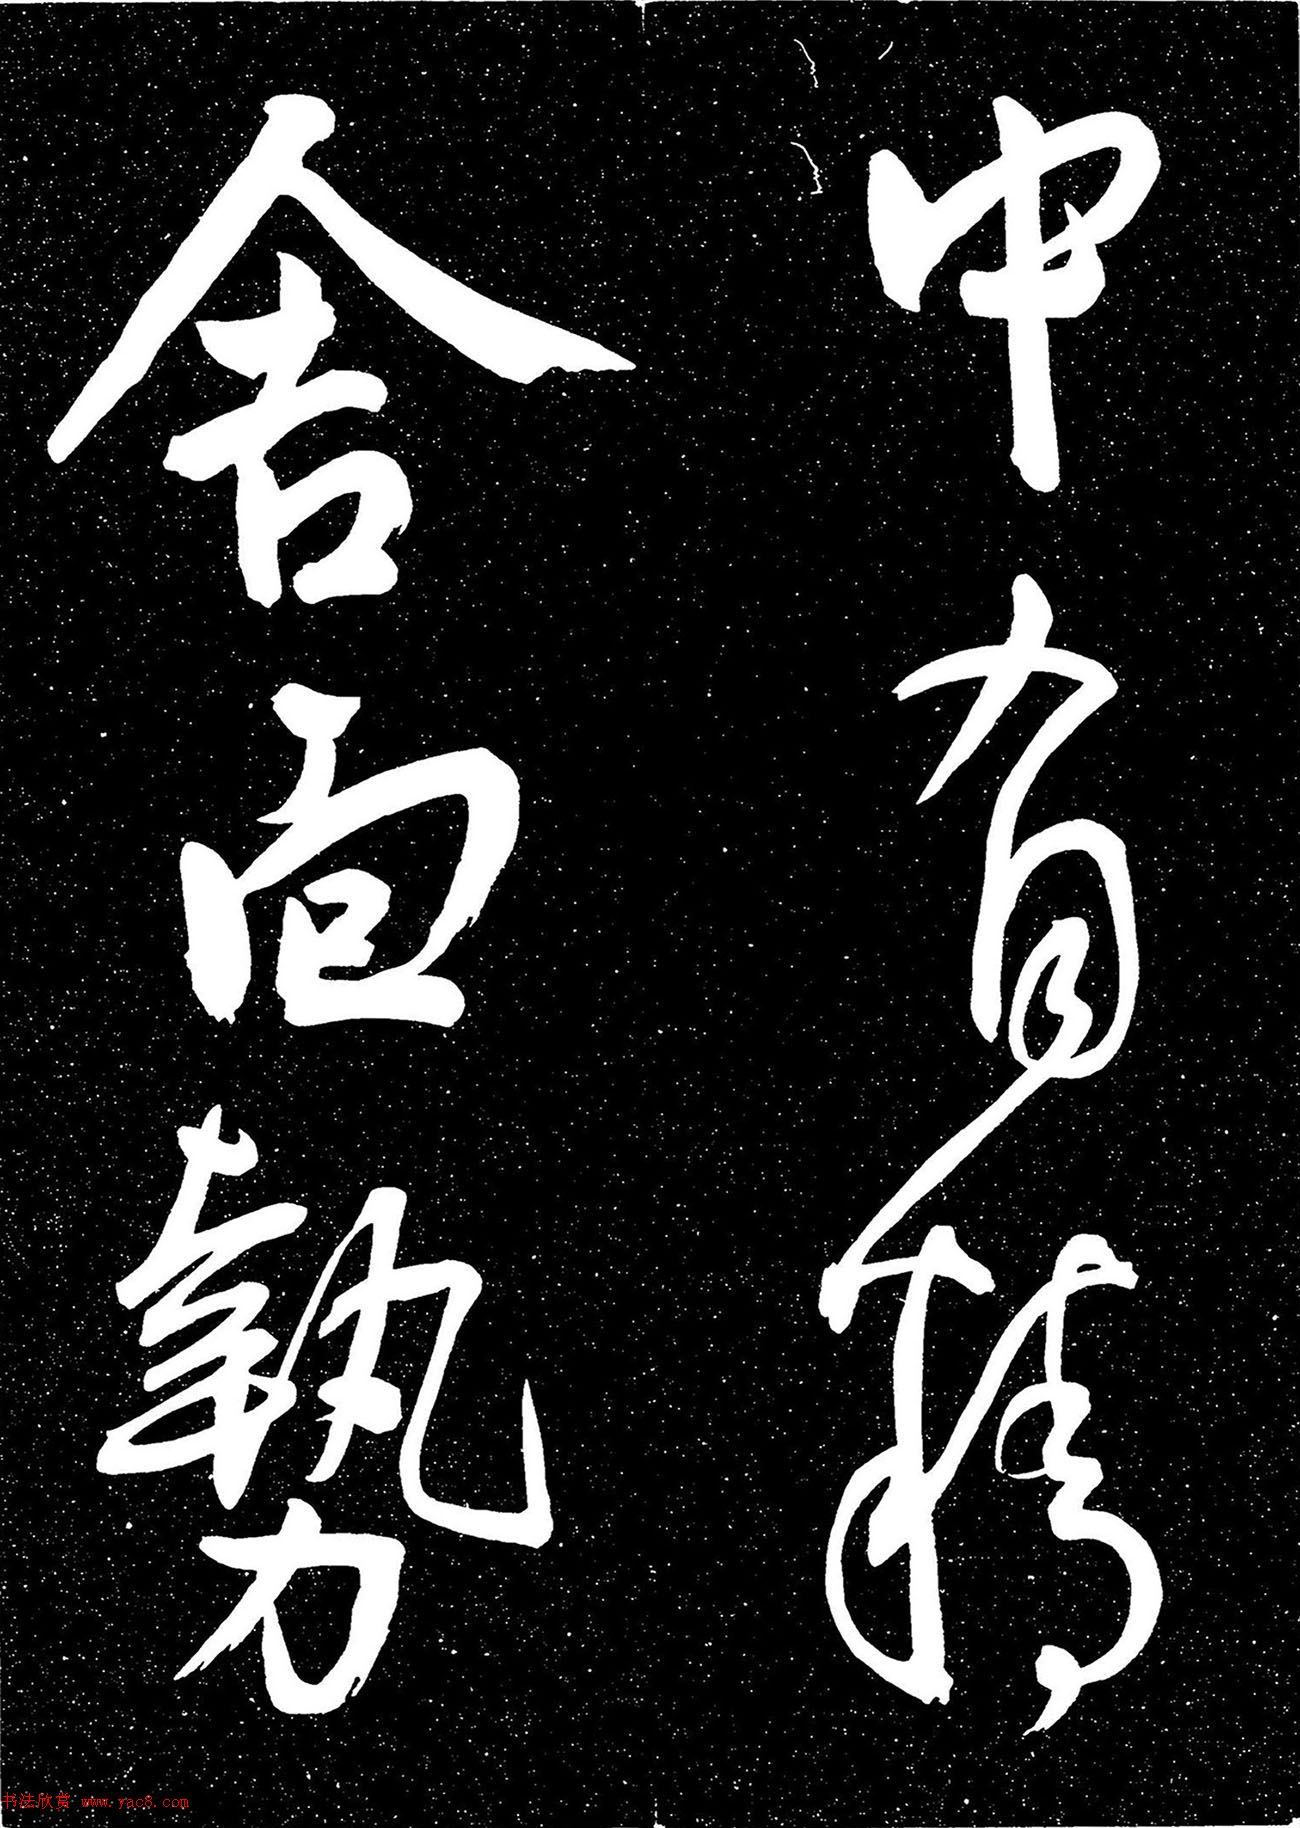 中有精
舍面勢
书法欣赏 www.yac8.com